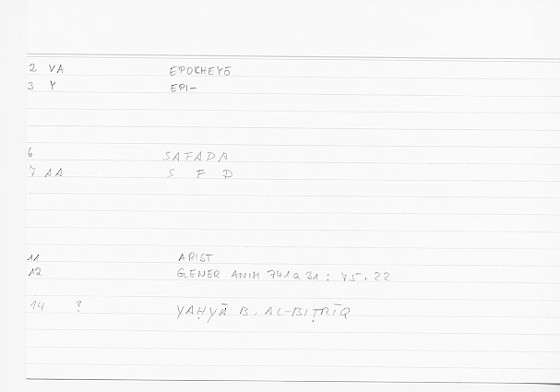 2 VA EPOKHEYŌ
3 Y EPI-
6 SAFADA
7 AA S F D
11 ARIST
12 GENER ANIM 741a31 : 75.22
14 ? YAḤYĀ B. AL-BIṬRĪQ